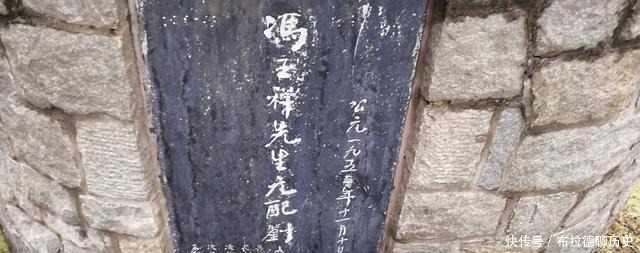 公元一九五年十一月十日
馮玉祥先生元配劉
快传号/布拉德聊历史